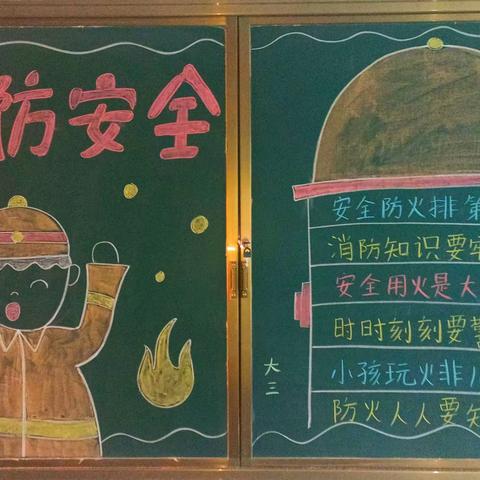 防安全
安全防火排第
消防知识要牢
安全用火是大
时时刻刻要警
小孩玩火非儿
防火人人要知
大三